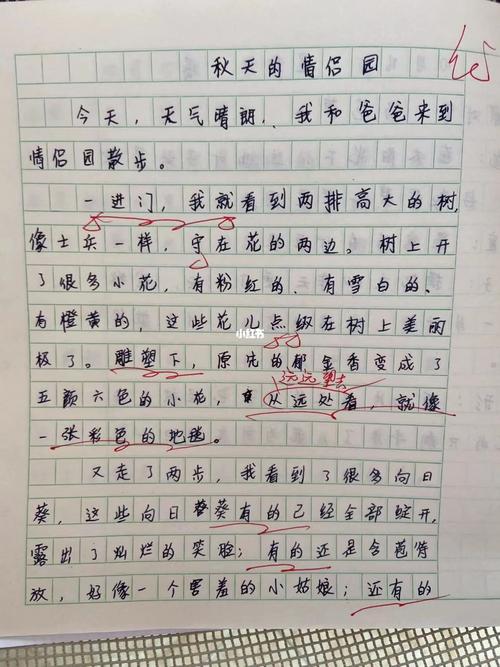 秋天的情侣园
今天，天气晴朗，我和爸爸来到
情侣园散步。
一进门，我就看到两排高大的树，
像士兵一样，守在花的两边。树上开
了很多小花，有粉红的、有雪白的、
有橙黄的，这些花儿点缀在树上美丽
极了。雕塑下，原先的郁金香变成了
远远望去
五颜六色的小花，从远处看，就像
一张彩色的地毯。
又走了两步，我看到了很多向日
葵，这些向日葵有的已经全部绽开，
露出了灿烂的笑脸；有的还是含苞待
放，好像一个害羞的小姑娘；还有的
小红书